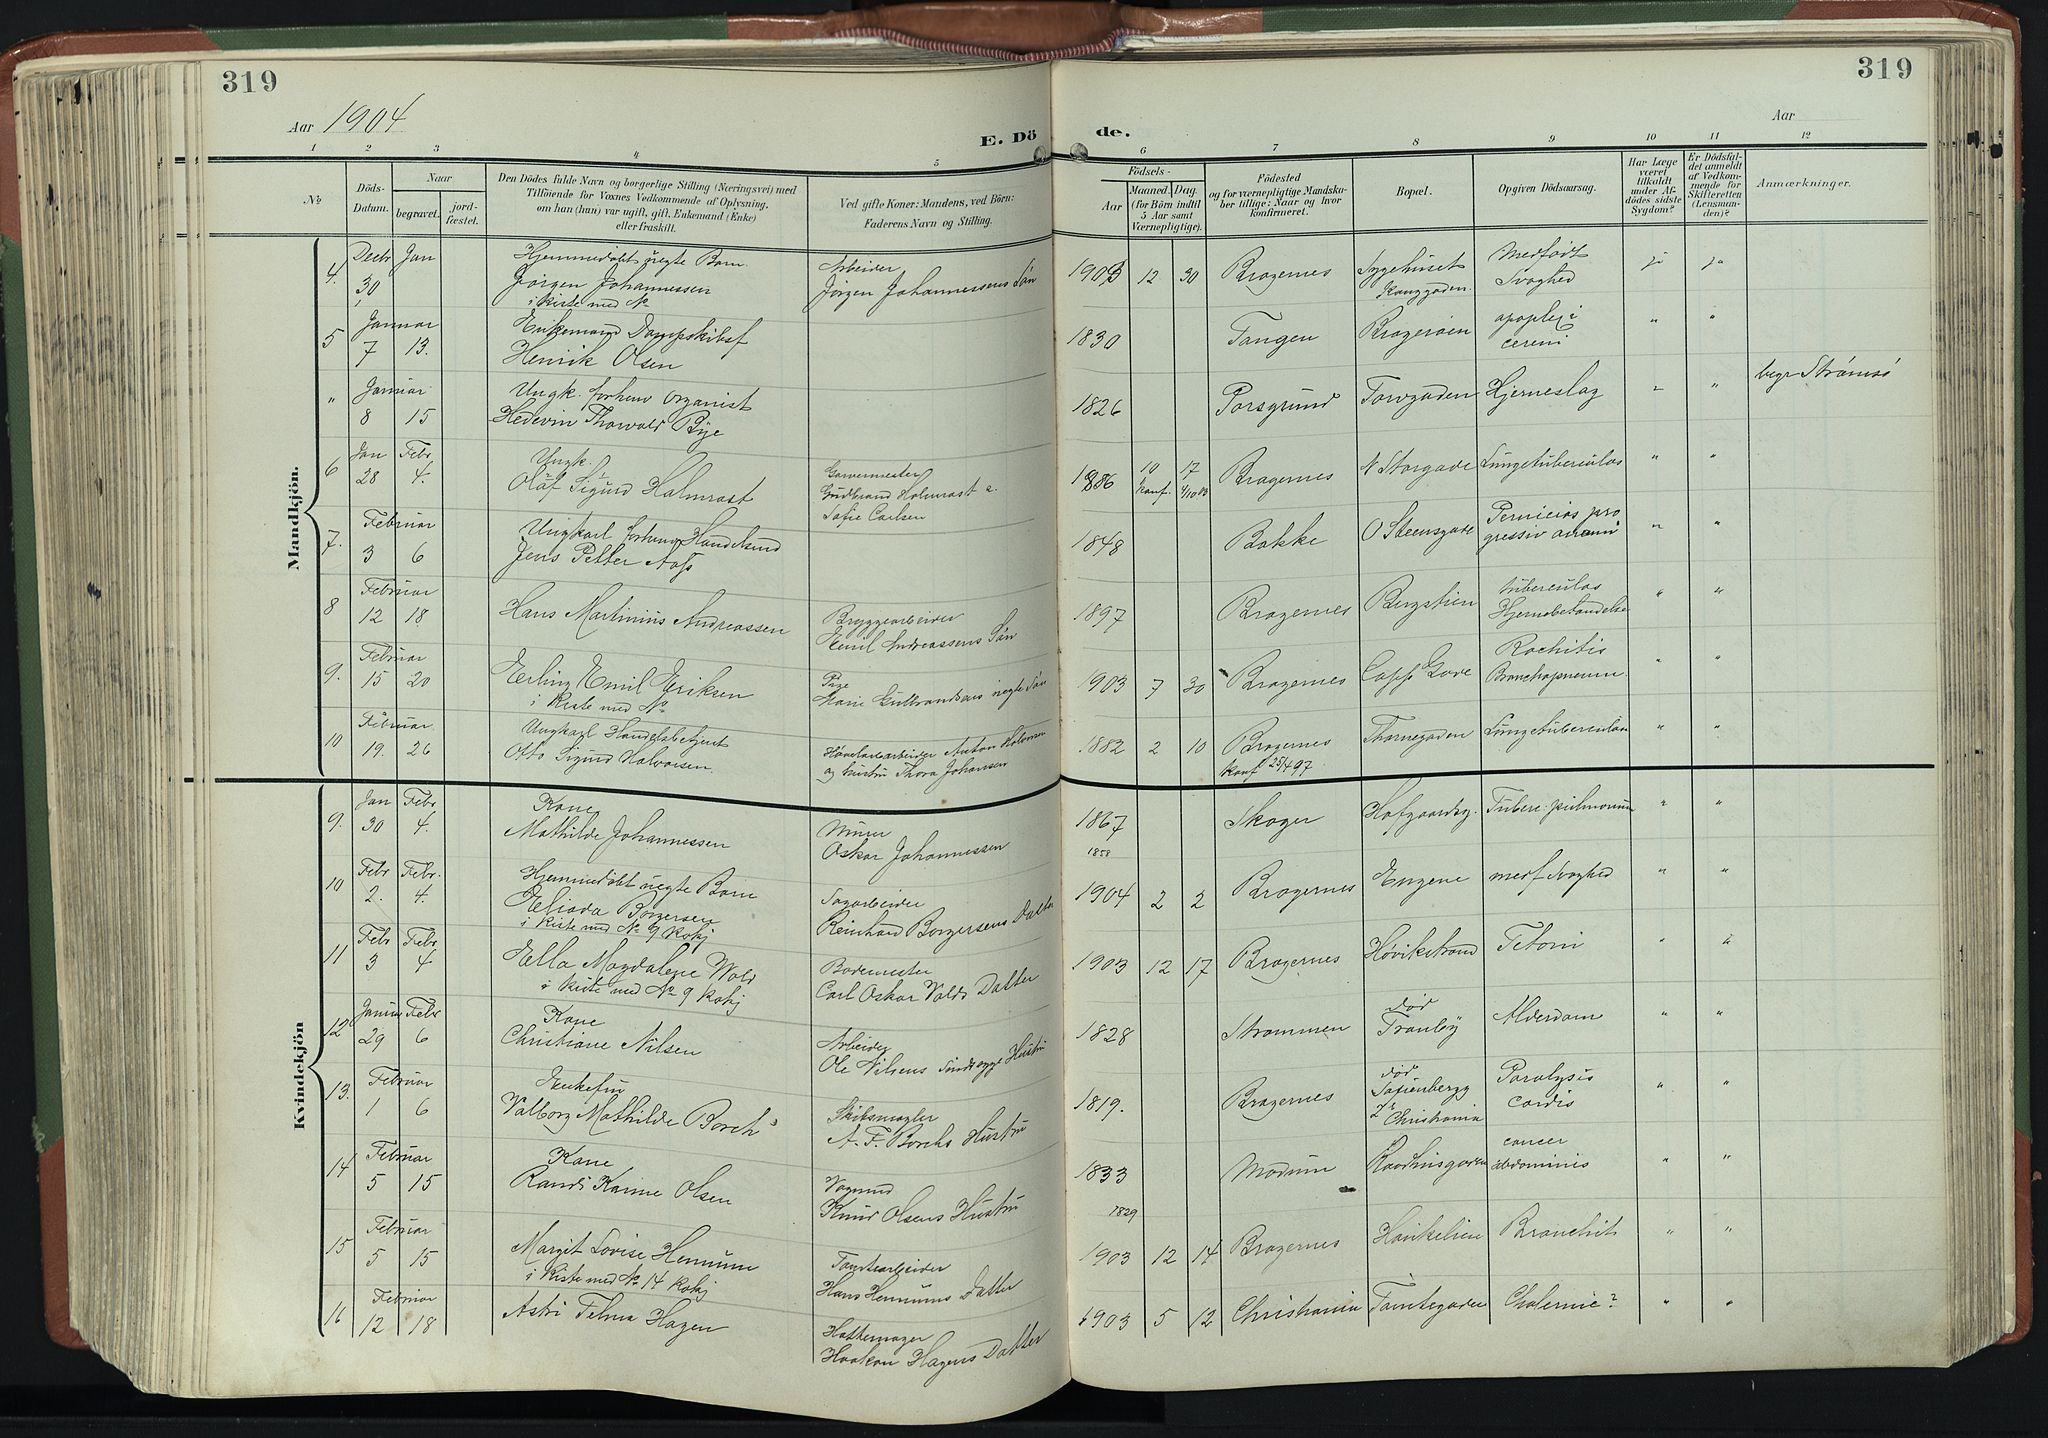 319
319
Aar 1904
Aar
E. Dö
de.
1 2 3 4 5 6 7 8 9 10 11 12
No
Döds-Datum.
Naar
begravet.
jord-fæstet.
Den Dödes fulde Navn og borgerlige Stilling (Næringsvei) med
Tilföiende for Voxnes Vedkommende af Oplysning,
om han (hun) var ugift, gift, Enkemand (Enke)
eller fraskilt.
Ved gifte Koner: Mandens, ved Börn:
Faderens Navn og Stilling.
Födsels-
Aar
Maaned. Dag.
(for Börn indtil
5 Aar samt
Værnepligtige).
Födested
og for værnepligtige Mandska-
ber tillige: Naar og hvor
konfirmeret.
Bopæl.
Opgiven Dödsaarsag.
Har Læge
været
tilkaldt
under Af-
dödes sidste
Sygdom?
Er Dödsfal-
det anmeldt
af Vedkom-
mende for
Skifteretten
(Lensman-
den)?
Anmærkninger.
Mandkjön.
4. Decbr 30 Jan Hjemmedøbt ægte Barn Jørgen Johannessen i Kiste med No Arbeider Jørgen Johannessens Søn 1903 12 30 Bragernes Sygehuset Konggaden Medfødt Svaghed ja ja
5 Januar 7 13. Enkemand Henrik Olsen 1830 Tangen Bragerøen apoplexi " "
" Januar 8 15 Ungk. forhenv Organist Hedevin Thorvald Bye 1826 Porsgrund Torvgaden Hjerneslag " " begr Strømsø
6 Jan 28 Febr 4. Ungk. Olaf Sigurd Holmrast Garvermester Gudbrand Holmrast & Sofie Carlsen 1886 10 17 konf. 4/10 03 Bragernes N Storgade Lungetuberculos " "
7. Februar 3 6 Ungkarl forhenv Handelsmd Jens Petter Aass 1848 Bakke O Steensgade Pernicios progressiv anæmi " "
8 Februar 12 18 Hans Martinius Andreassen Bryggearbeider Emil Andreassens Søn 1897 Bragernes Bergstien tuberculos Hjernebetændelse " "
9. Februar 15 20 Erling Emil Eriksen i Kiste med No Pige Marie Gulbrandsens uegte Søn 1903 7 30 Bragernes Rachitis Bronchopneum. " "
10 Februar 19. 26 Ungkarl Handelsbetjent Otto Sigurd Halvorsen. Høvelarearbeider Anton Halvorsen og hustru Thora Johansen 1882 2 10 Bragernes konf 25/4 97 Thornegaden Lungetuberculose " "
Kvindekjön
9. Jan 30 Febr 4. Kone Mathilde Johannessen Murer Oskar Johannessen 1858 1867 Skoger Hofgaardsg. Tuberc: pulmonum " "
10 Febr 2. Febr. 4. Hjemmedøbt uegte Barn Eliada Borgersen i Kiste med No 9 Kvkj Sagarbeider Reinhard Borgersens Datter 1904 2 2 Bragernes Engene medf Svaghed " "
11 Febr 3 Febr 4 Ella Magdalene Wold i Kiste med No 9 Kvkj Bademester Carl Oskar Volds Datter 1903 12 17 Bragernes Høvikstrand Tetani " "
12 Januar 29 Febr 6 Kone Christiane Nilsen Arbeider Ole Nilsens Hustru 1828 Strømmen død Tranby Alderdom " "
13. Februar 1 6 Enkefru Valborg Mathilde Borch Skibsmægler A. F. Borchs Hustru 1819. Bragernes død Christiania Paralysis cordis " "
14 Februar 5 15 Kone Randi Karine Olsen Vognmd Knud Olsens Hustru 1829 1833 Modum Raadhusgaden cancer abdominis " "
15 Februar 5 15 Margit Lovise Hennum i Kiste med No 14 Kvkj Tomtearbeider Hans Hennums Datter 1903 12 14 Bragernes Haukelien Bronchit " "
16 Februar 12 18 Astri Telma Hagen Hattemager Haakon Hagens Datter 1903 5 12 Christiania Tomtegaden Cholerine? " "